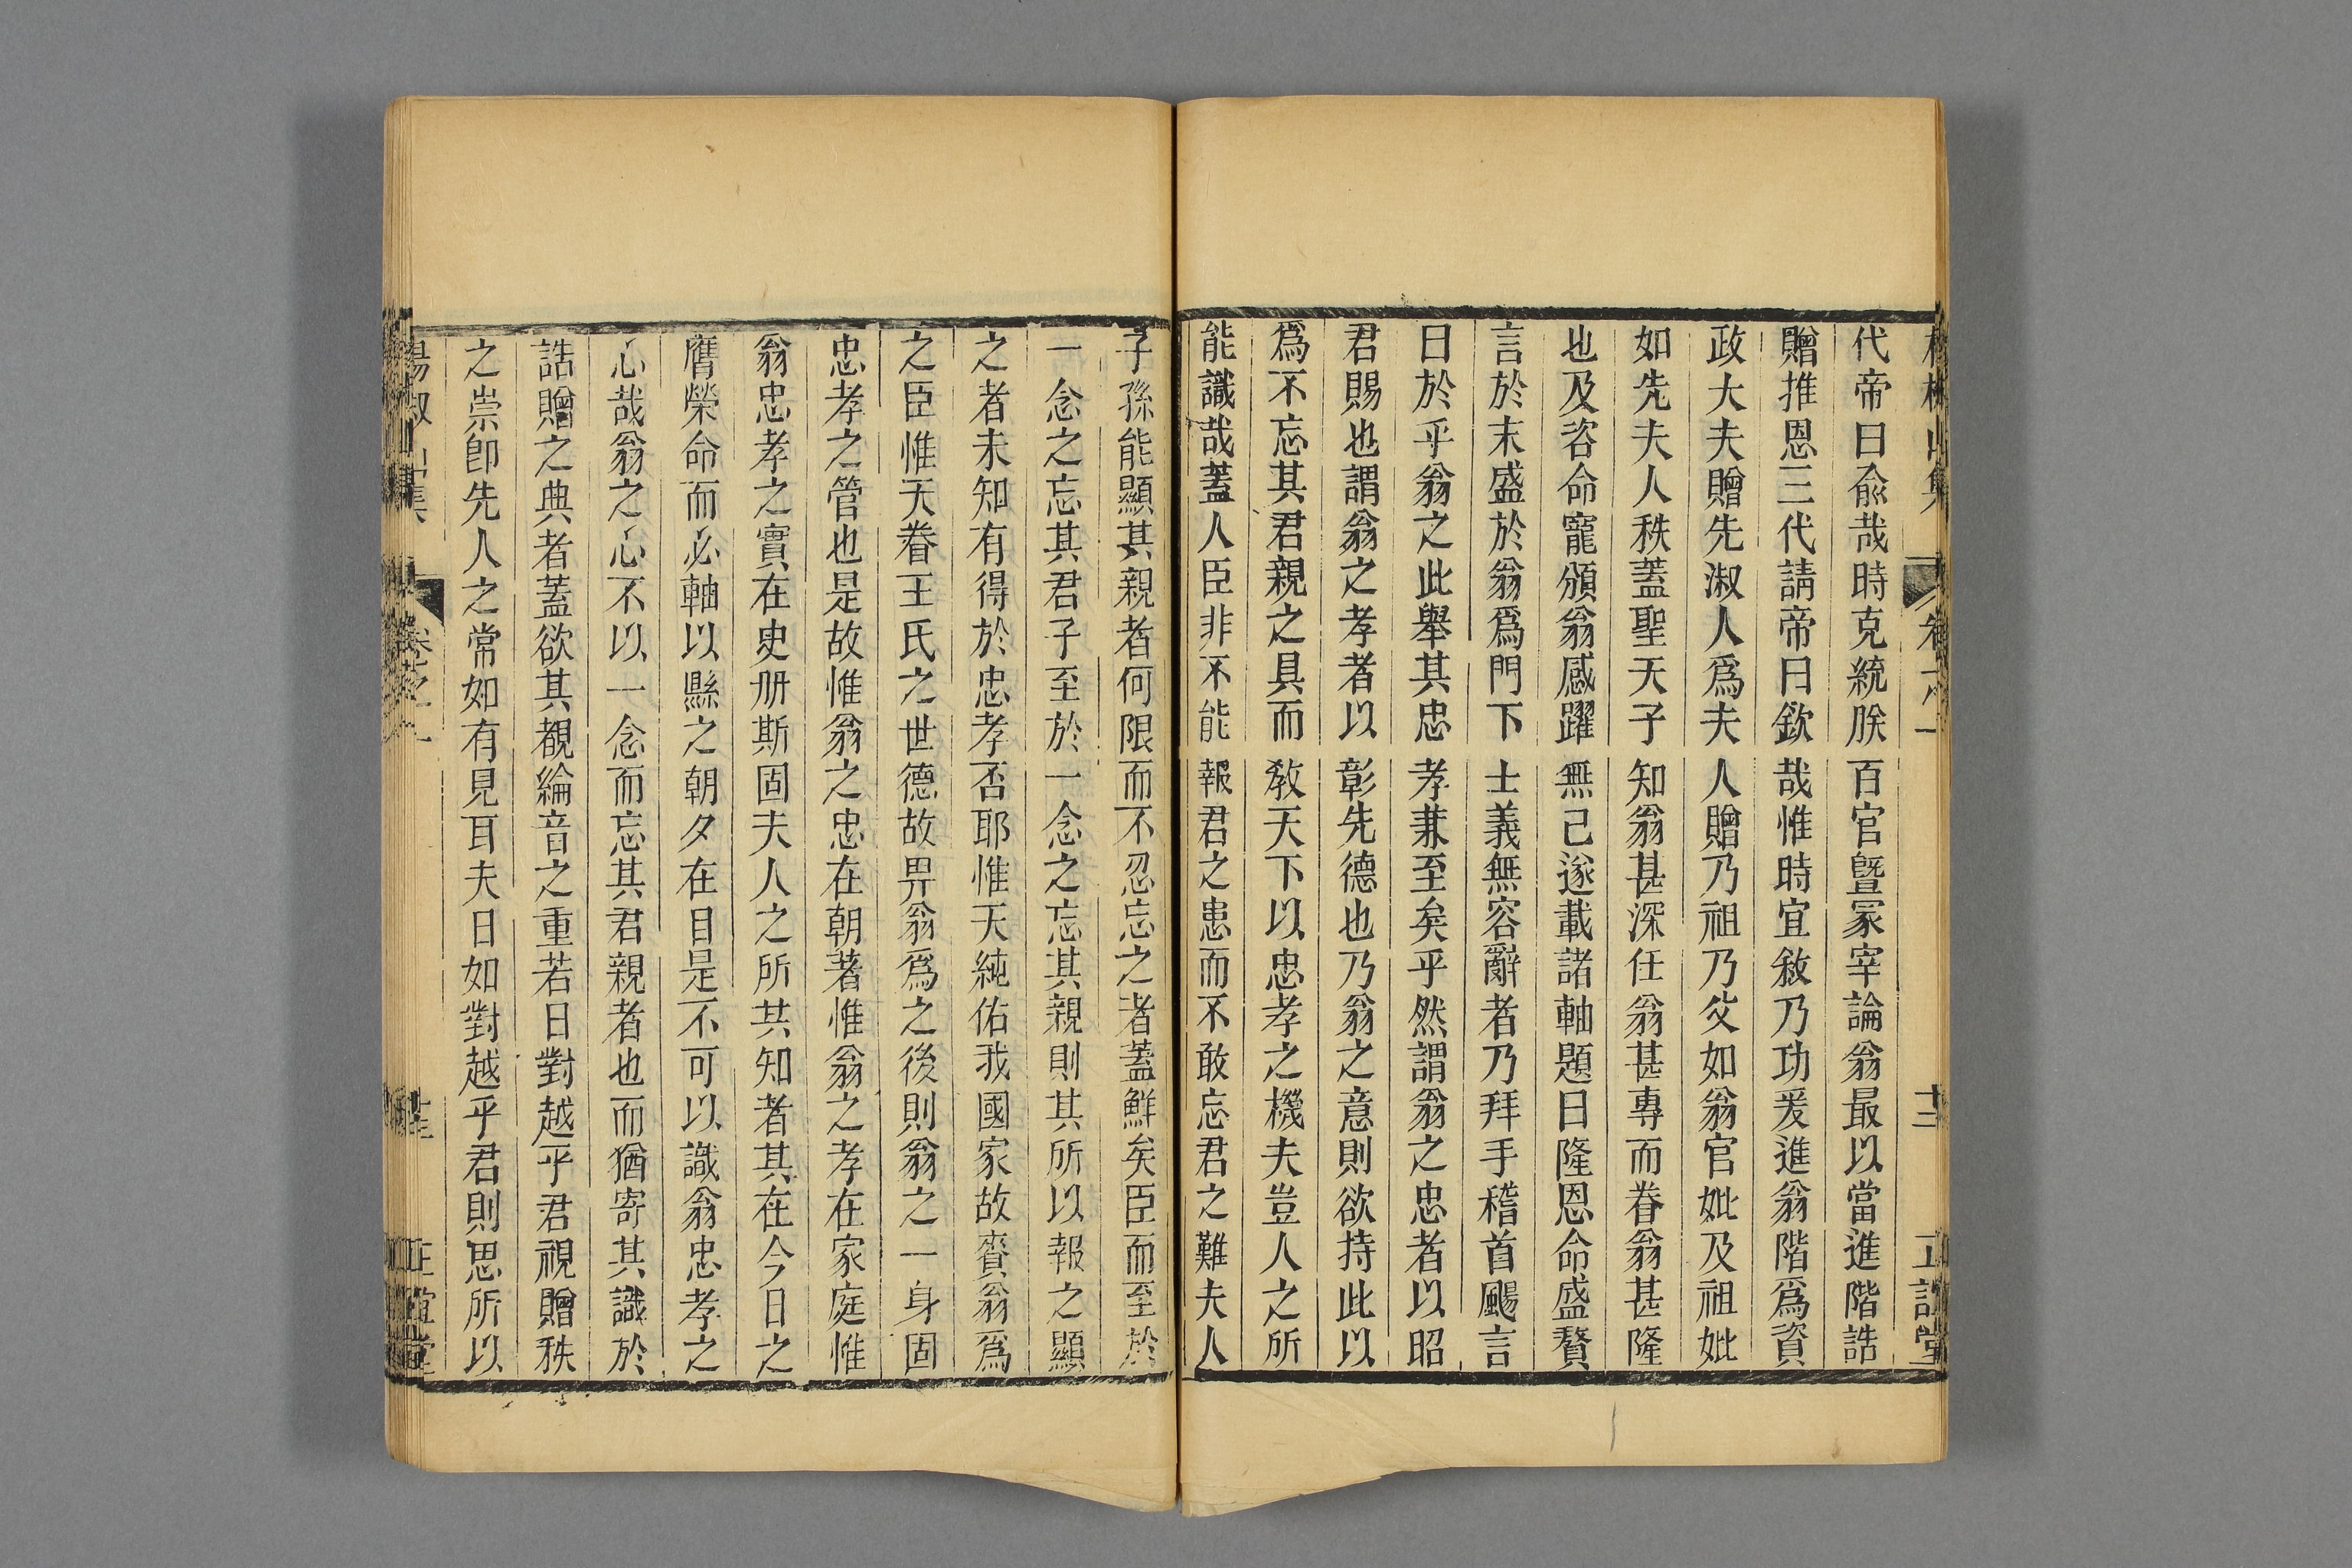 代帝曰兪哉時克統朕百官曁冢宰論翁最以當進階誥
贈推恩三代請帝曰欽哉惟時宜敘乃功爰進翁階爲資
政大夫贈先淑人爲夫人贈乃祖乃父如翁官妣及祖妣
如先夫人秩蓋聖天子知翁甚深任翁甚專而眷翁甚隆
也及咨命寵頒翁感躍無已遂載諸軸題曰隆恩命盛贅
言於末盛於翁爲門下士義無容辭者乃拜手稽首颺言
曰於乎翁之此舉其忠孝兼至矣乎然謂翁之忠者以昭
君賜也謂翁之孝者以彰先德也乃翁之意則欲持此以
爲不忘其君親之具而敎天下以忠孝之機夫豈人之所
能識哉蓋人臣非不能報君之患而不敢忘君之難夫人
子孫能顯其親者何限而不忍忘之者蓋鮮矣臣而至於
一念之忘其君子至於一念之忘其親則其所以報之顯
之者未知有得於忠孝否耶惟天純佑我國家故賚翁爲
之臣惟天眷王氏之世德故畀翁爲之後則翁之一身固
忠孝之管也是故惟翁之忠在朝著惟翁之孝在家庭惟
翁忠孝之實在史册斯固夫人之所共知者其在今日之
膺榮命而必軸以縣之朝夕在目是不可以識翁忠孝之
心哉翁之心不以一念而忘其君親者也而猶寄其識於
誥贈之典者蓋欲其覩綸音之重若日對越乎君視贈秩
之崇卽先人之常如有見耳夫日如對越乎君則思所以